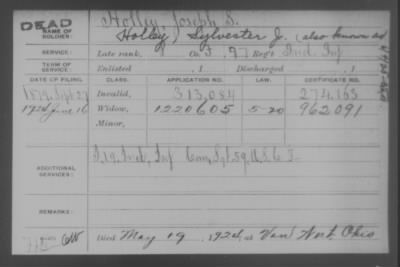 DEAD
Holley, Joseph S.
NAME OF SOLDIER:
Holley, Sylvester J. (also known as
SERVICE: Late rank, Co. F, 97 Reg't Ind. Inf
TERM OF SERVICE: Enlisted , 1 Discharged , 1
DATE OF FILING. CLASS. APPLICATION NO. LAW. CERTIFICATE NO.
1879, Sept 27 Invalid, 313,084 274,163
1924 June 16 Widow, 1220605 5-20 962091
Minor,
ADDITIONAL SERVICES:
Inf Com, Sgt, 59, U.S.C.
REMARKS:
Died May 19, 1924, at Van Wert, Ohio